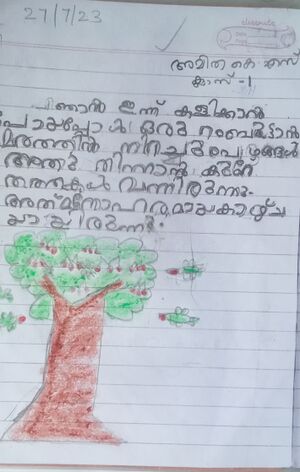 27/7/23
classmate
Date
Page
അമിത കെ എസ്
ക്ലാസ് -1
ഞാൻ ഇന്ന് കളിക്കാൻ
പോയപ്പോൾ ഒരു റംബൂട്ടാൻ
മരത്തിൽ നിറച്ചും പഴങ്ങൾ
അതു തിന്നാൻ കുറേ
തത്തകൾ വന്നിരുന്നു.
അത് മനോഹരമായ കാഴ്ച
യായിരുന്നു.